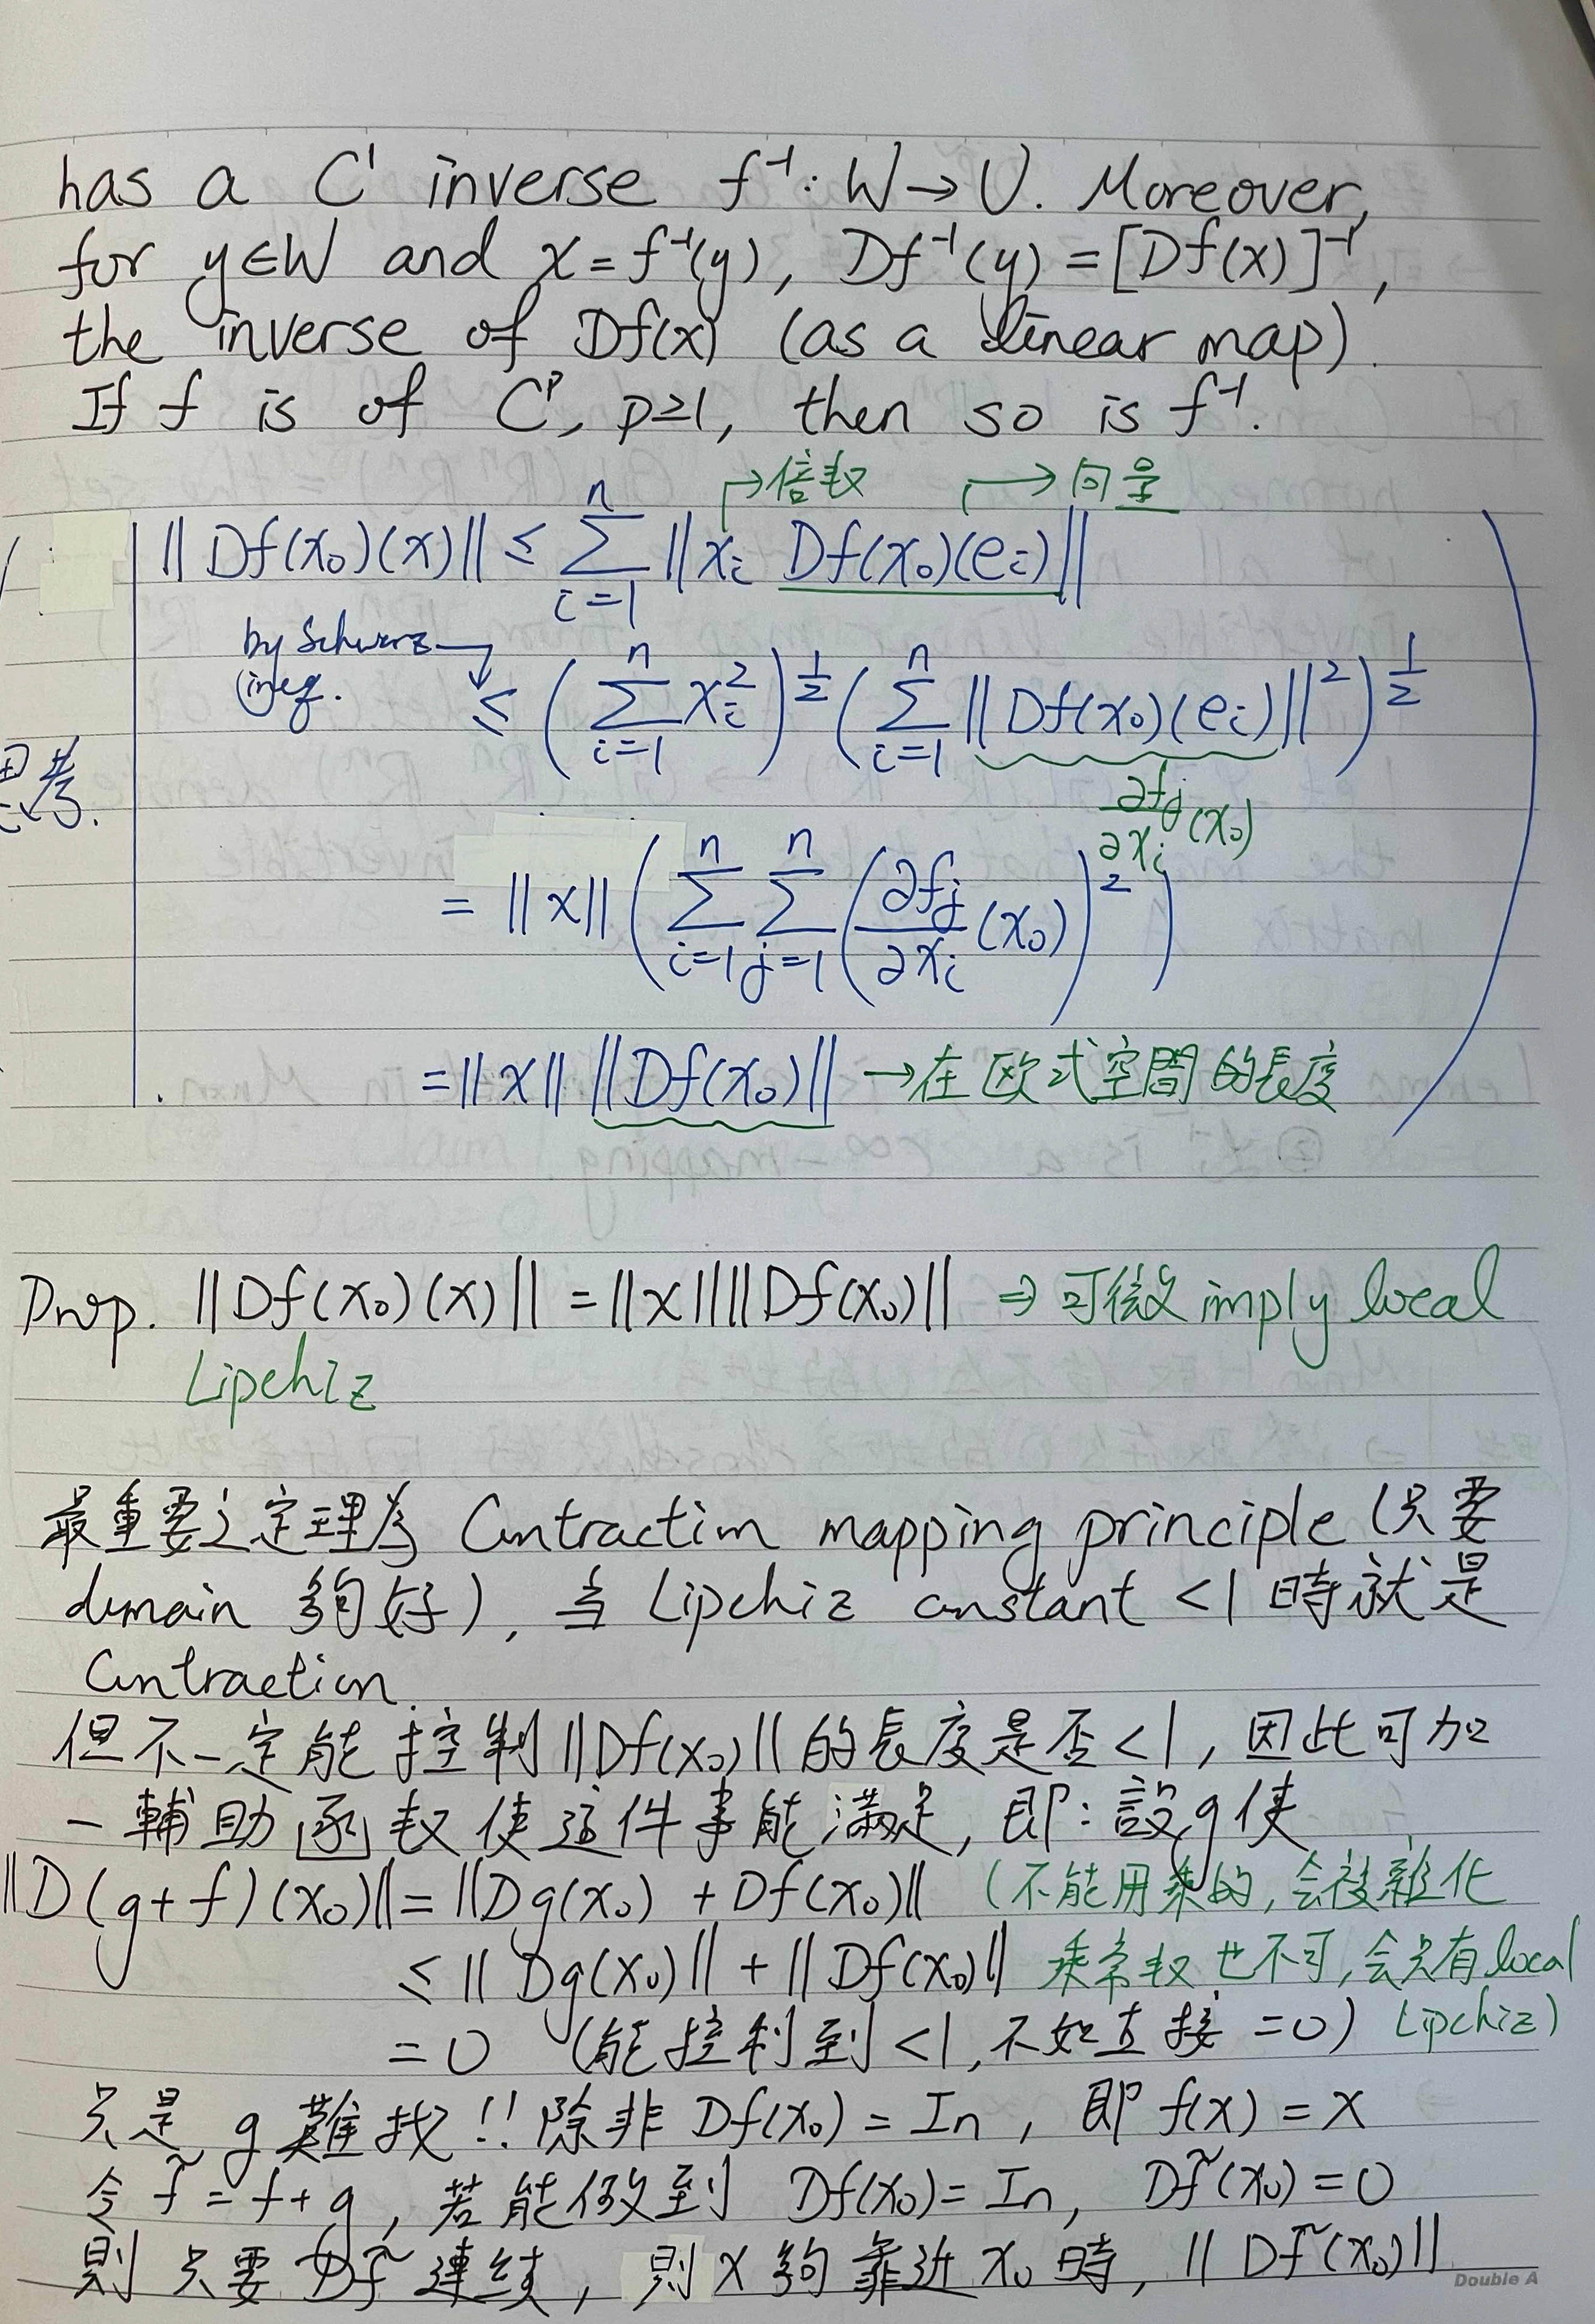 has a C¹ inverse f⁻¹: W→U. Moreover,
for y∈W and x=f⁻¹(y), Df⁻¹(y) = [Df(x)]⁻¹,
the inverse of Df(x) (as a linear map).
If f is of Cᵖ, p≥1, then so is f⁻¹.
→倍数 → 向量
‖Df(x₀)(x)‖ ≤ Σᵢ₌₁ⁿ ‖xᵢ Df(x₀)(eᵢ)‖
by Schwarz
ineq. ≤ (Σᵢ₌₁ⁿ xᵢ²)^½ (Σᵢ₌₁ⁿ ‖Df(x₀)(eᵢ)‖²)^½
思考.
∂fⱼ/∂xᵢ (x₀)
= ‖x‖ (Σᵢ₌₁ⁿ Σⱼ₌₁ⁿ (∂fⱼ/∂xᵢ (x₀))²)
= ‖x‖ ‖Df(x₀)‖ → 在欧式空間的長度
Prop. ‖Df(x₀)(x)‖ = ‖x‖‖Df(x₀)‖ ⇒ 可微 imply local
Lipchiz
最重要之定理為 Contraction mapping principle (只要
domain 夠好), 当 Lipchiz constant <1 時就是
Contraction.
但不一定能控制‖Df(x₀)‖的長度是否<1, 因此可加
一輔助函数使這件事能滿足, 即: 設g使
‖D(g+f)(x₀)‖=‖Dg(x₀) + Df(x₀)‖ (不能用乘的, 会複雜化
≤ ‖Dg(x₀)‖ + ‖Df(x₀)‖ 乘常数也不可, 会只有local
= 0 (能控制到<1, 不如直接 =0) Lipchiz)
只是 g 難找!! 除非 Df(x₀) = In, 即 f(x) = x
令 f̃ = f+g, 若能做到 Df(x₀) = In, Df̃(x₀) = 0
則只要 Df̃ 連续, 則 x 夠靠近 x₀ 時, ‖Df̃(x₀)‖
Double A